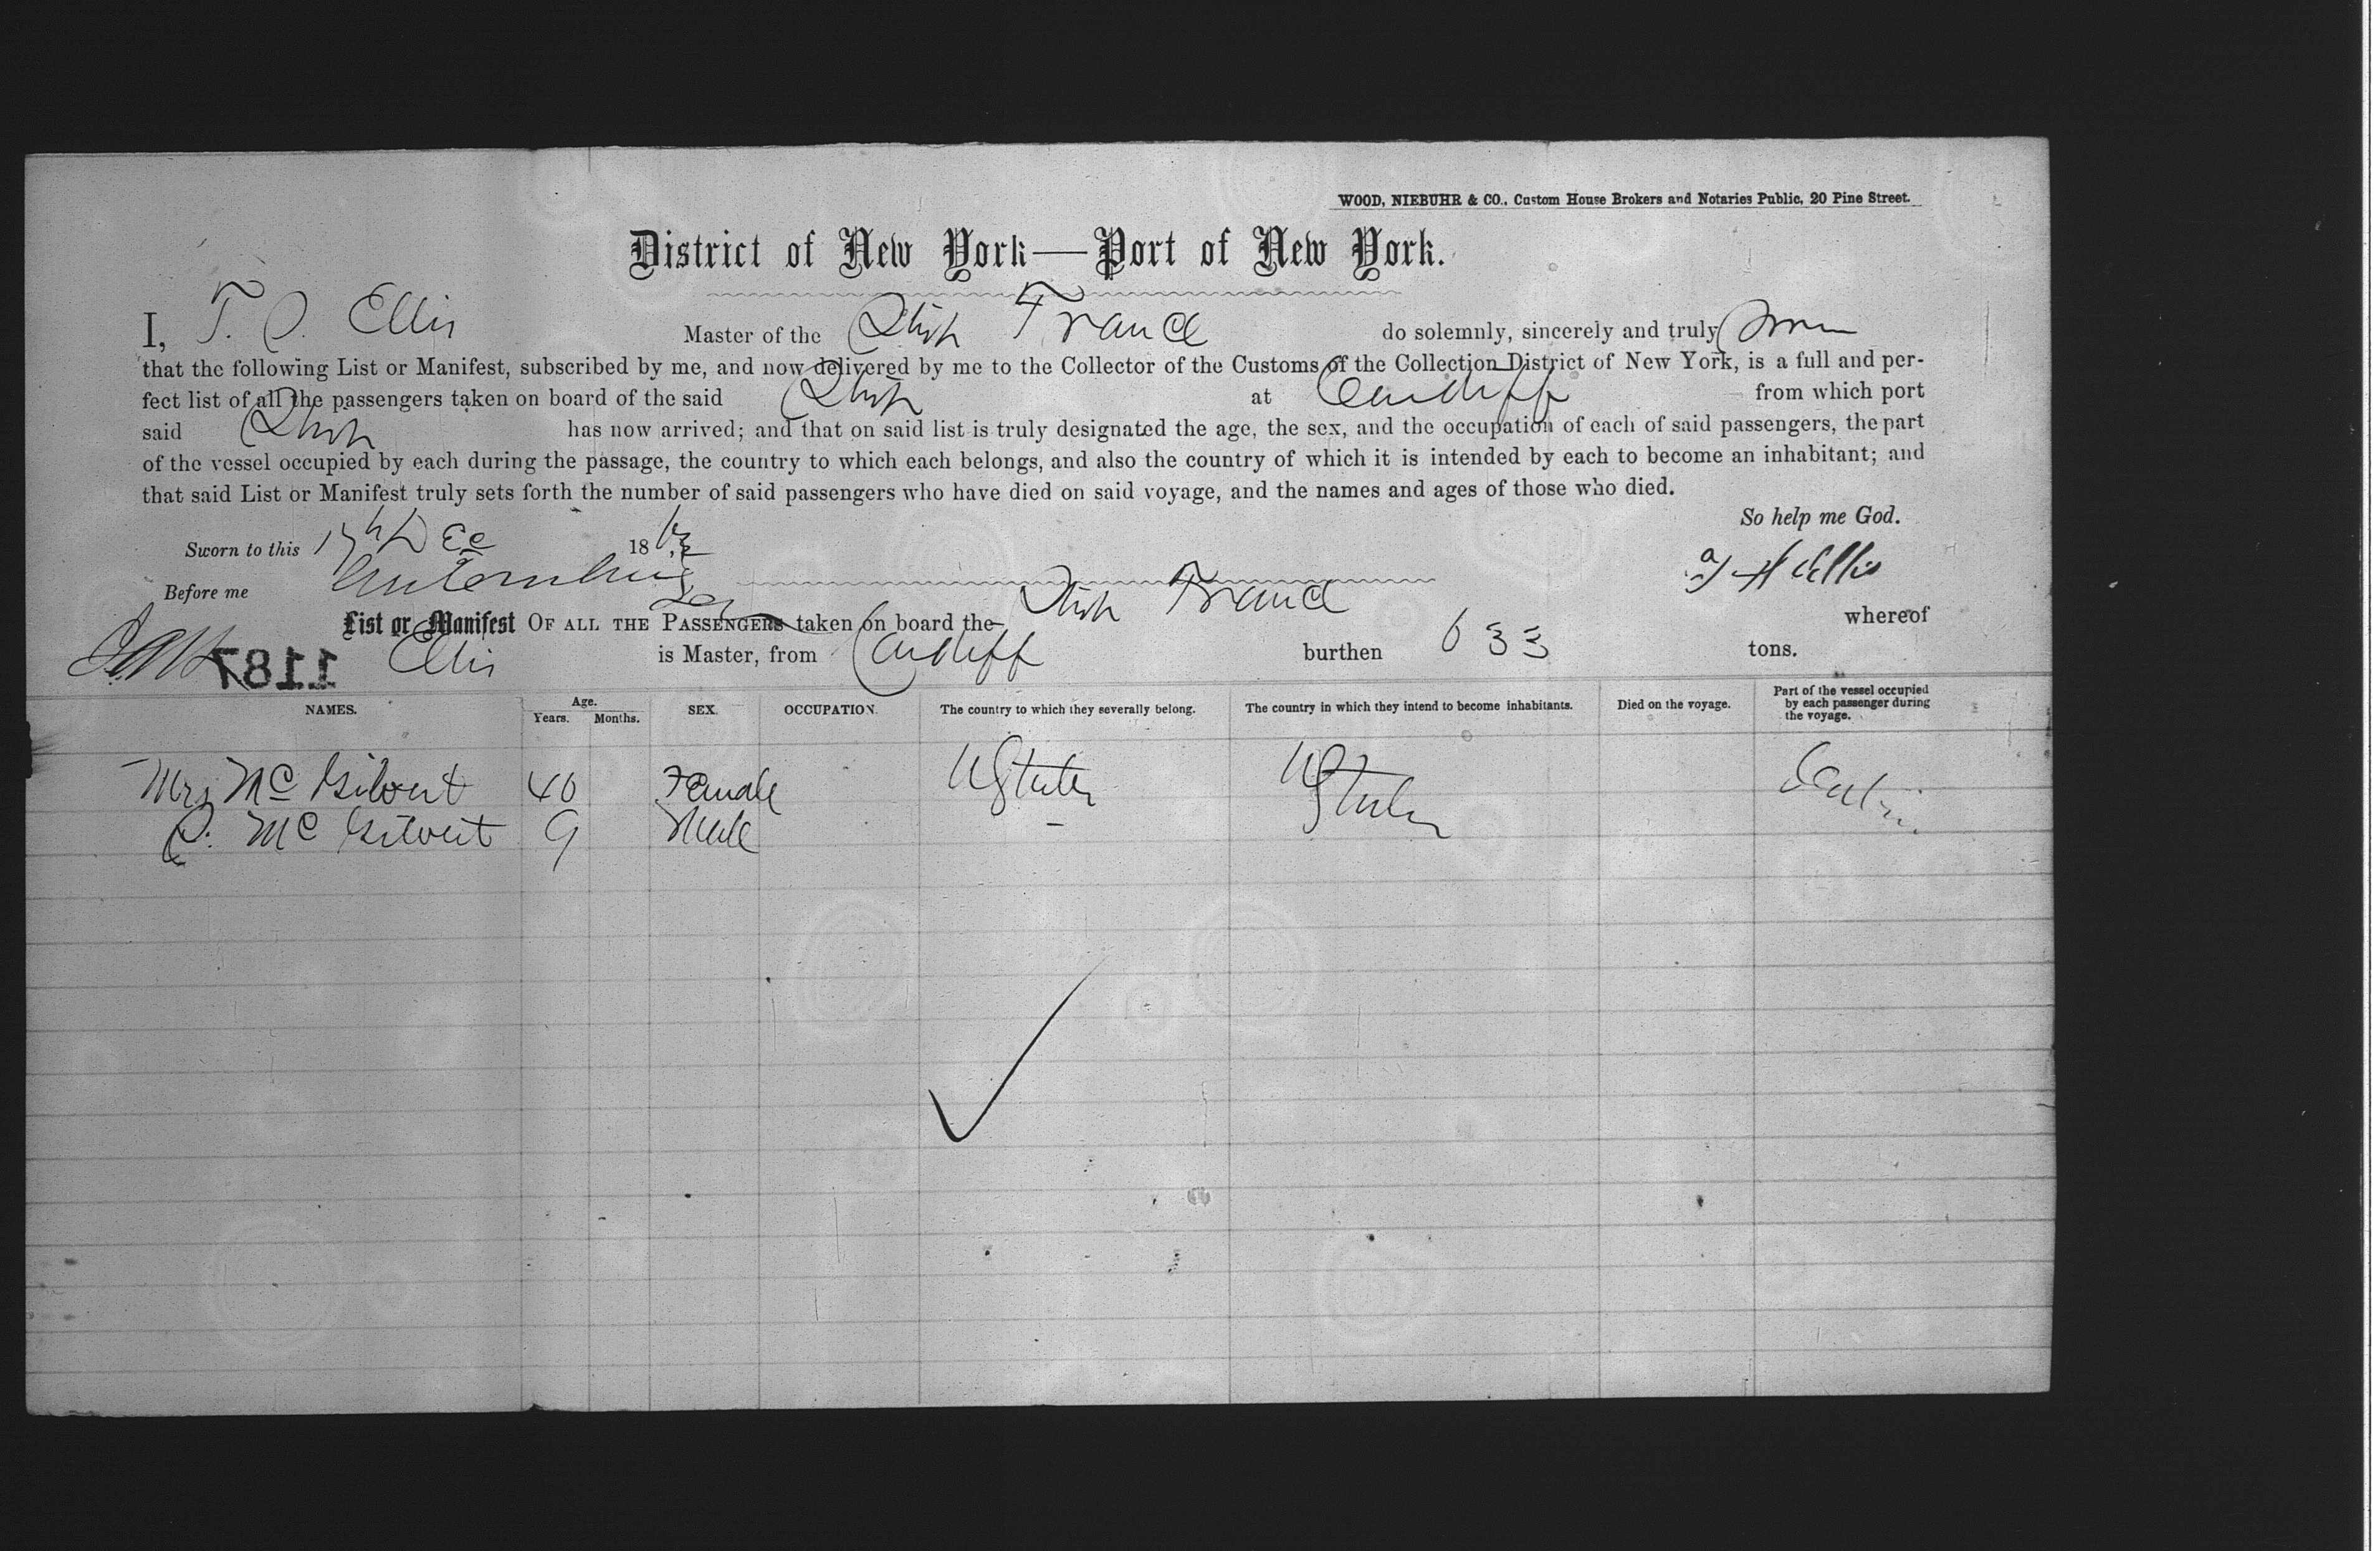 WOOD, NIEBUHR & CO., Custom House Brokers and Notaries Public, 20 Pine Street.
District of New York—Port of New York.
I, T. O. Ellis Master of the Ship France do solemnly, sincerely and truly
that the following List or Manifest, subscribed by me, and now delivered by me to the Collector of the Customs of the Collection District of New York, is a full and per-
fect list of all the passengers taken on board of the said Ship at Cardiff from which port
said Ship has now arrived; and that on said list is truly designated the age, the sex, and the occupation of each of said passengers, the part
of the vessel occupied by each during the passage, the country to which each belongs, and also the country of which it is intended by each to become an inhabitant; and
that said List or Manifest truly sets forth the number of said passengers who have died on said voyage, and the names and ages of those who died.
So help me God.
Sworn to this 17th Dec 186
Before me
Ellis
List or Manifest OF ALL THE PASSENGERS taken on board the Ship France whereof
1187 Ellis is Master, from Cardiff burthen 633 tons.
NAMES. Age. Years. Months. SEX. OCCUPATION. The country to which they severally belong. The country in which they intend to become inhabitants. Died on the voyage. Part of the vessel occupied by each passenger during the voyage.
Mrs Mc Gilvert 40 Female U States U States Cabin
Mc Gilvert 9 Male -